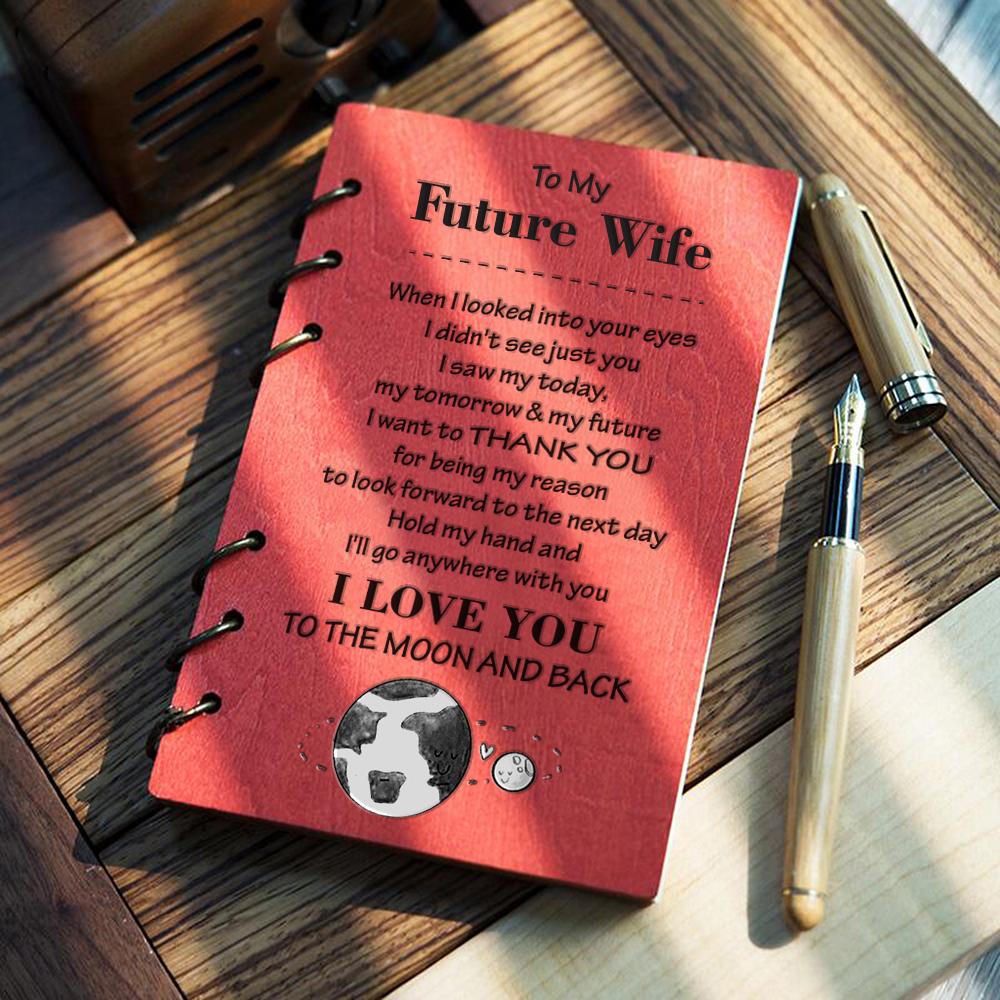 To My
Future Wife
When I looked into your eyes
I didn't see just you
I saw my today,
my tomorrow & my future
I want to THANK YOU
for being my reason
to look forward to the next day
Hold my hand and
I'll go anywhere with you
I LOVE YOU
TO THE MOON AND BACK